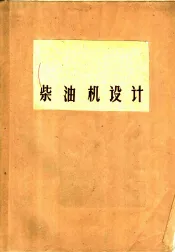 柴油机设计